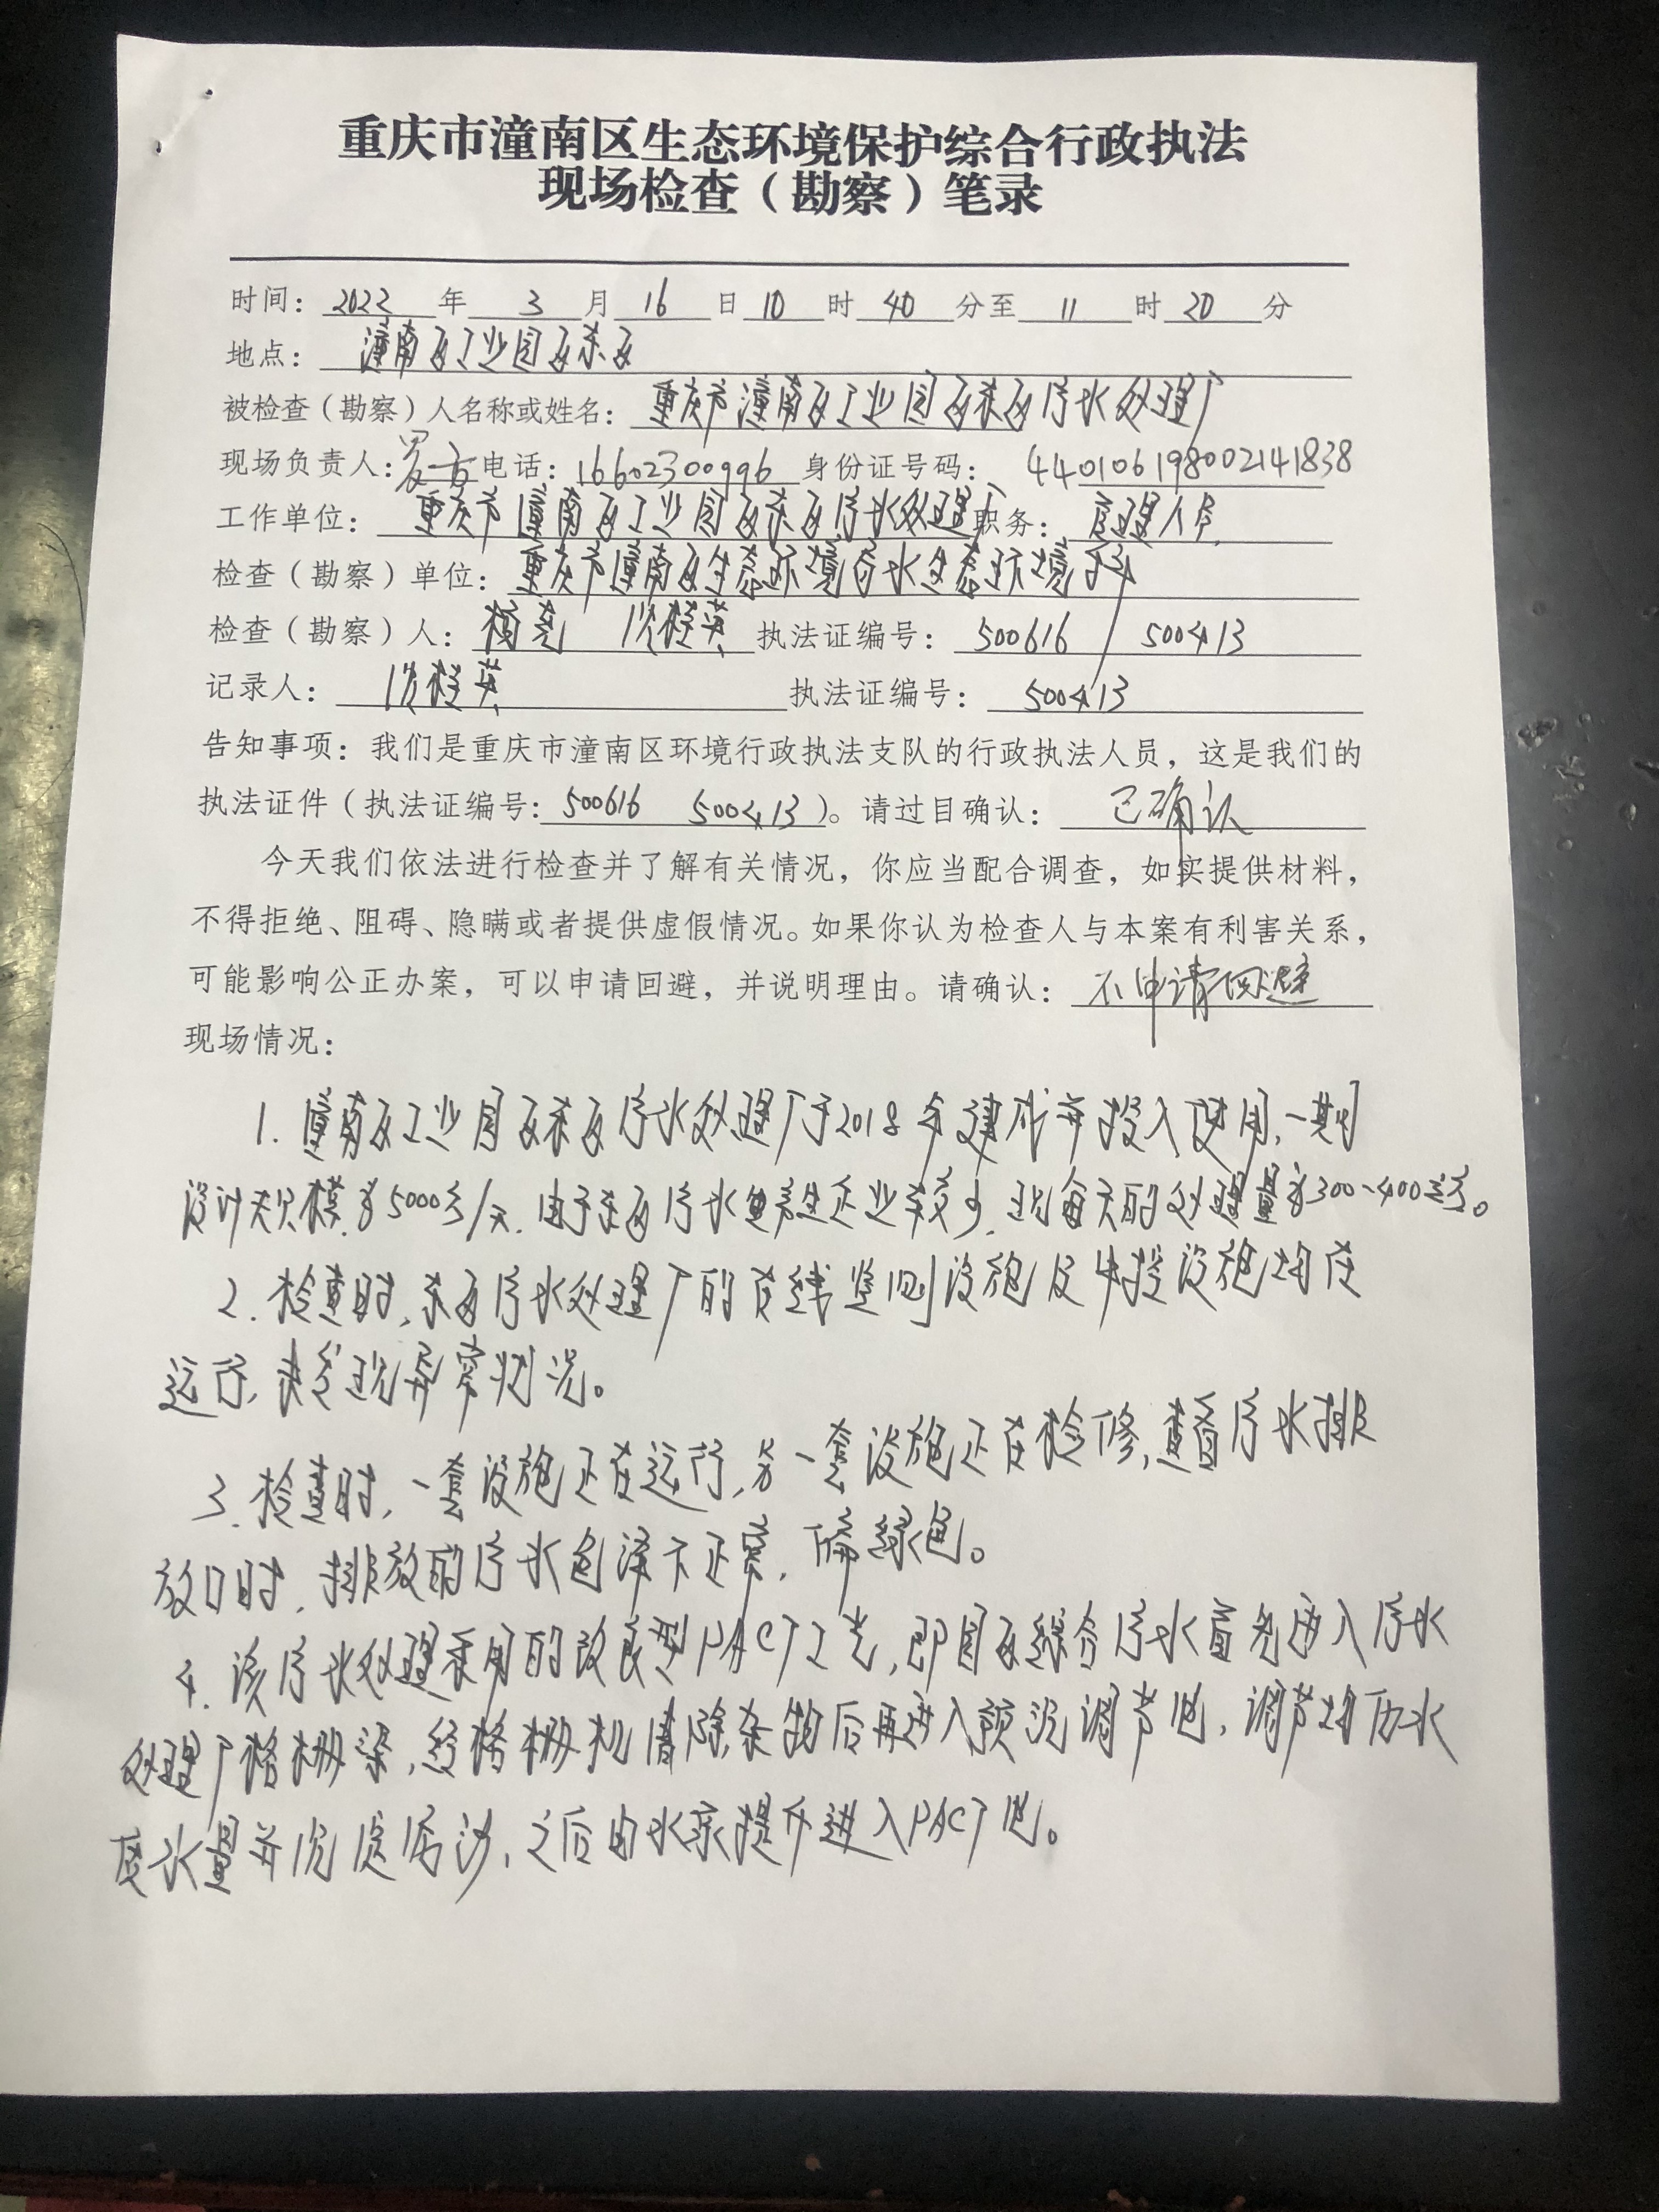 重庆市潼南区生态环境保护综合行政执法
现场检查（勘察）笔录
时间：2022年3月16日10时40分至11时20分
地点：潼南区工业园区东区
被检查（勘察）人名称或姓名：重庆市潼南区工业园区东区污水处理厂
现场负责人：罗 电话：16602300996 身份证号码：440106198002141838
工作单位：重庆市潼南区工业园区东区污水处理厂 职务：管理人员
检查（勘察）单位：重庆市潼南区生态环境局水生态环境科
检查（勘察）人：杨尧 桂英 执法证编号：500616 500413
记录人：桂英 执法证编号：500413
告知事项：我们是重庆市潼南区环境行政执法支队的行政执法人员，这是我们的
执法证件（执法证编号：500616 500413）。请过目确认：已确认
今天我们依法进行检查并了解有关情况，你应当配合调查，如实提供材料，
不得拒绝、阻碍、隐瞒或者提供虚假情况。如果你认为检查人与本案有利害关系，
可能影响公正办案，可以申请回避，并说明理由。请确认：不申请回避
现场情况：
1. 潼南区工业园区东区污水处理厂于2018年建成并投入使用，一期
设计规模为5000方/天，由于东区污水企业较少，现每天的处理量为300-400方。
2. 检查时，东区污水处理厂的在线监测设施及中控设施均在
运行，未发现异常状况。
3. 检查时，一套设施正在运行，另一套设施正在检修，查看污水排
放口时，排放的污水色泽不正常，偏绿色。
4. 该污水处理采用的改良型PACT工艺，即园区综合污水首先进入污水
处理厂格栅渠，经格栅机清除杂物后再进入预沉调节池，调节均历水
质水量并沉淀污沙，之后由水泵提升进入PACT池。